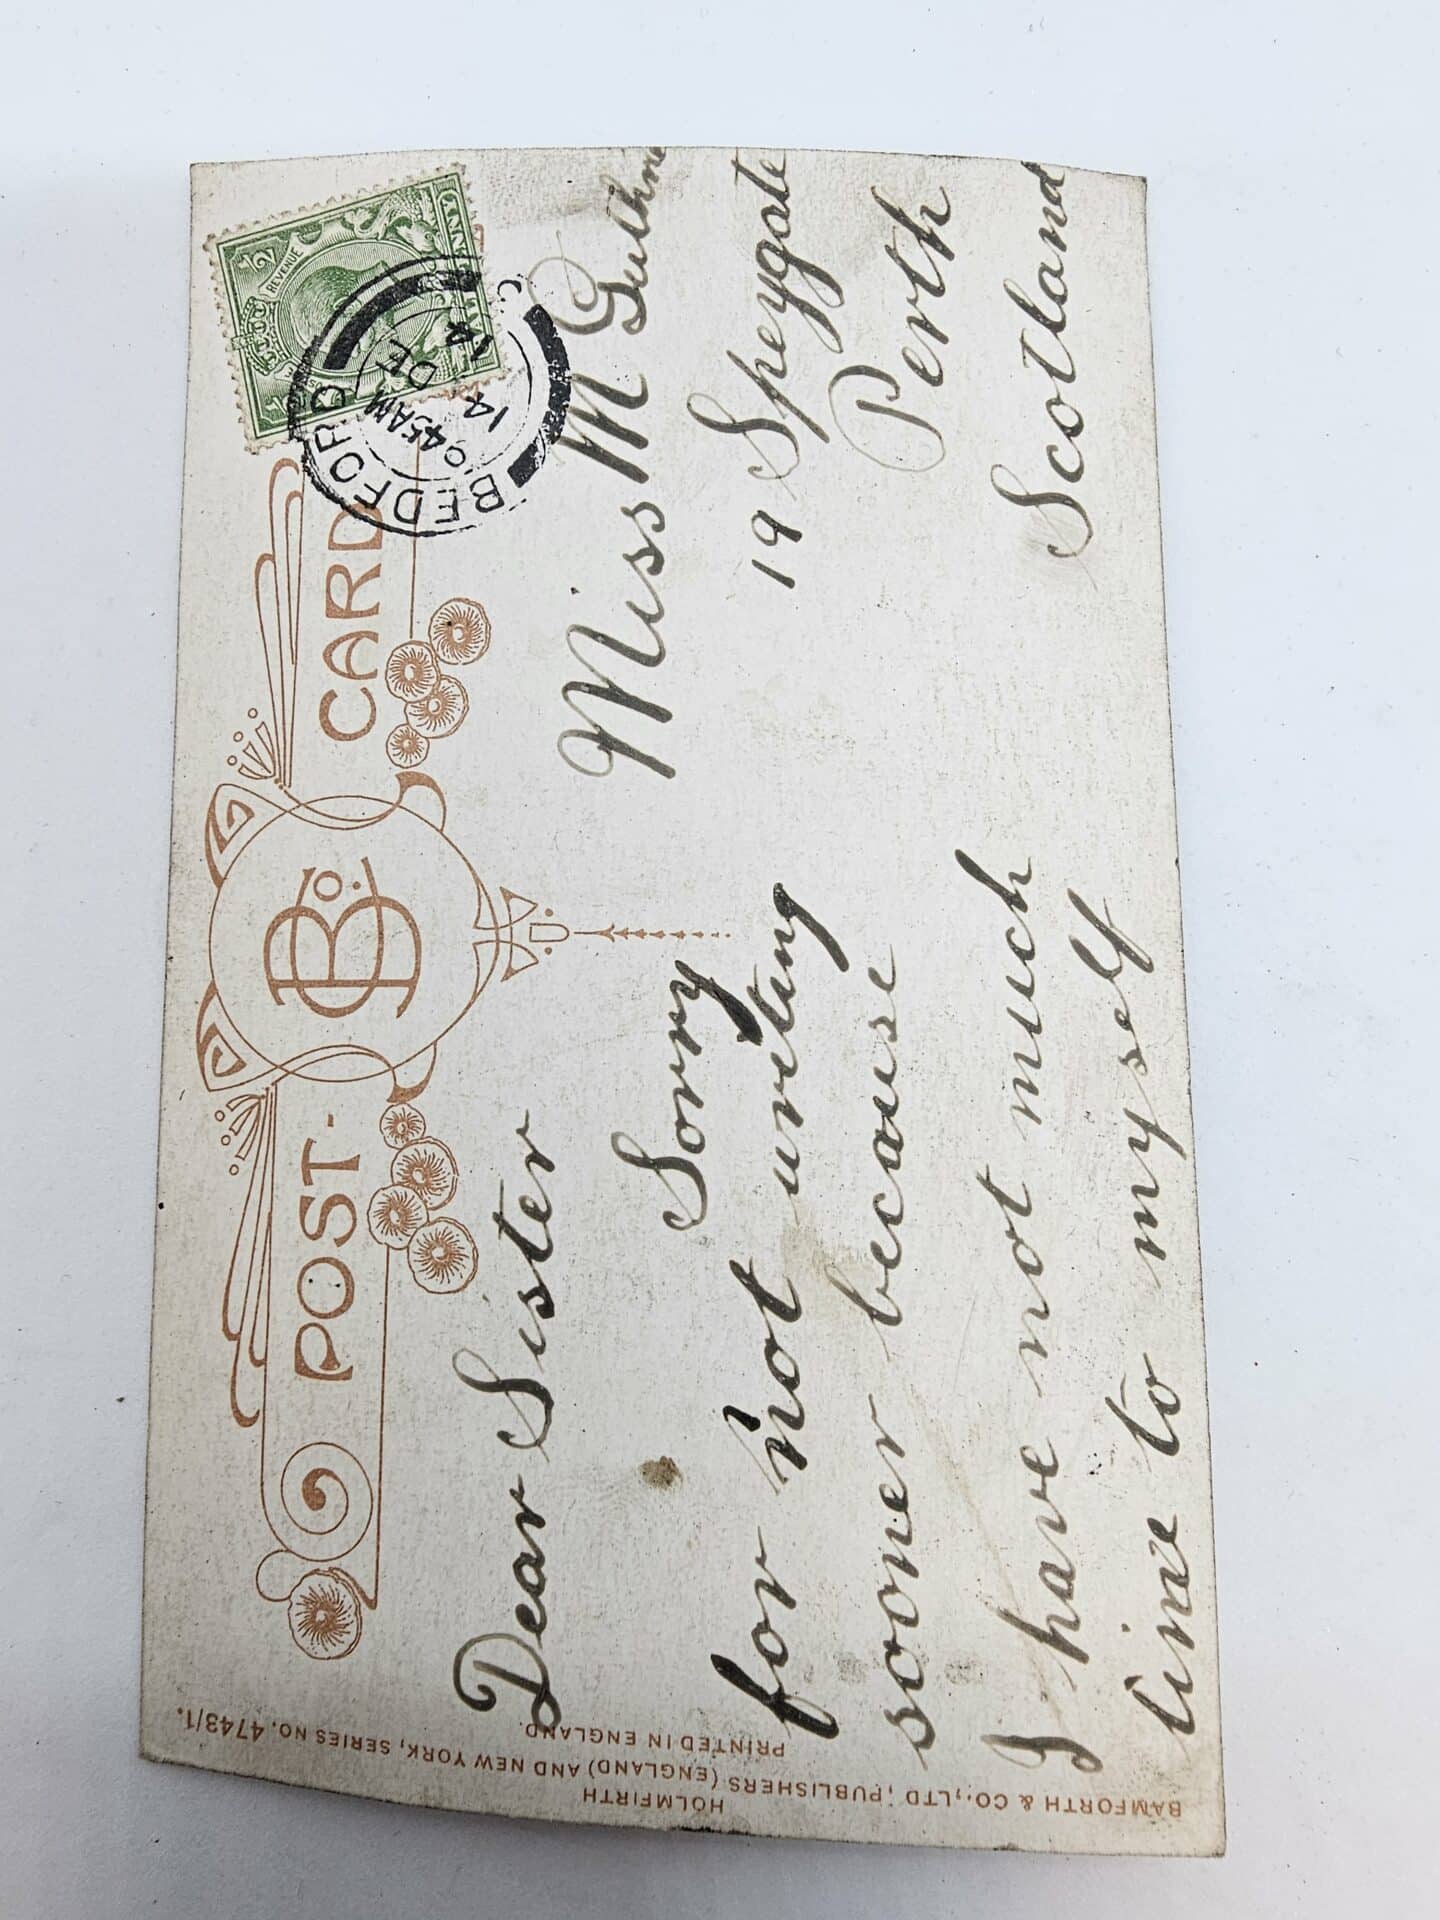 POST-CARD
B & Co.
REVENUE
BEDFORD
10 45 AM
14 DE
14
Dear Sister
Sorry
for not writing
sooner because
I have not much
time to myself
Miss M Guthrie
19 Speygate
Perth
Scotland
BAMFORTH & CO., LTD., PUBLISHERS (ENGLAND) AND NEW YORK, SERIES NO. 4743/1.
HOLMFIRTH
PRINTED IN ENGLAND.